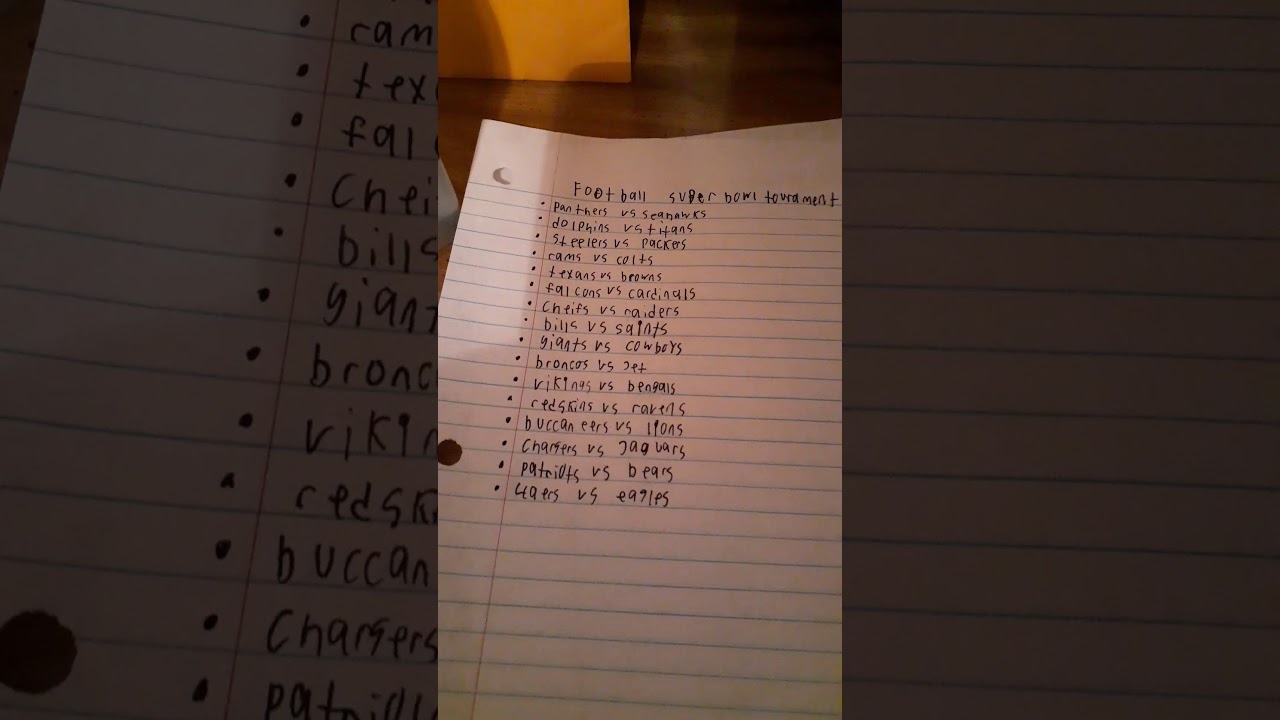 Football super bowl tourament
panthers vs seahawks
dolphins vs titans
steelers vs packers
rams vs colts
texans vs browns
falcons vs cardinals
cheifs vs raiders
bills vs saints
giants vs cowboys
broncos vs jet
vikings vs bengals
redskins vs ravens
buccaneers vs lions
chargers vs jaguars
patriots vs bears
49ers vs eagles